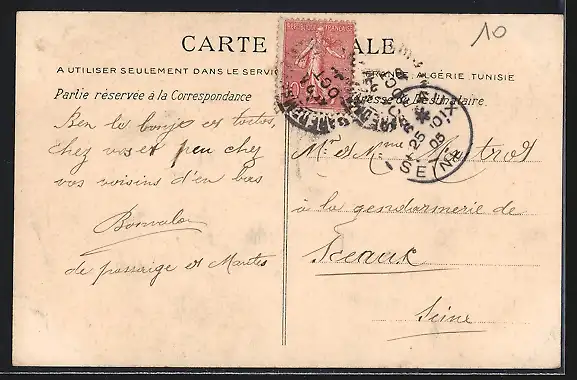 10
CARTE ALE
A UTILISER SEULEMENT DANS LE SERVIC FRANCE, ALGÉRIE, TUNISIE
Partie réservée à la Correspondance
Adresse du Destinataire.
Ben le bonjo et toitos,
chez vous et peu chez
vos voisins d'en bas
Bonvalo
de passaige et Mantes
Mr et Mme Matrot
à la gendarmerie de
Sceaux
Seine
25 05
SEINE